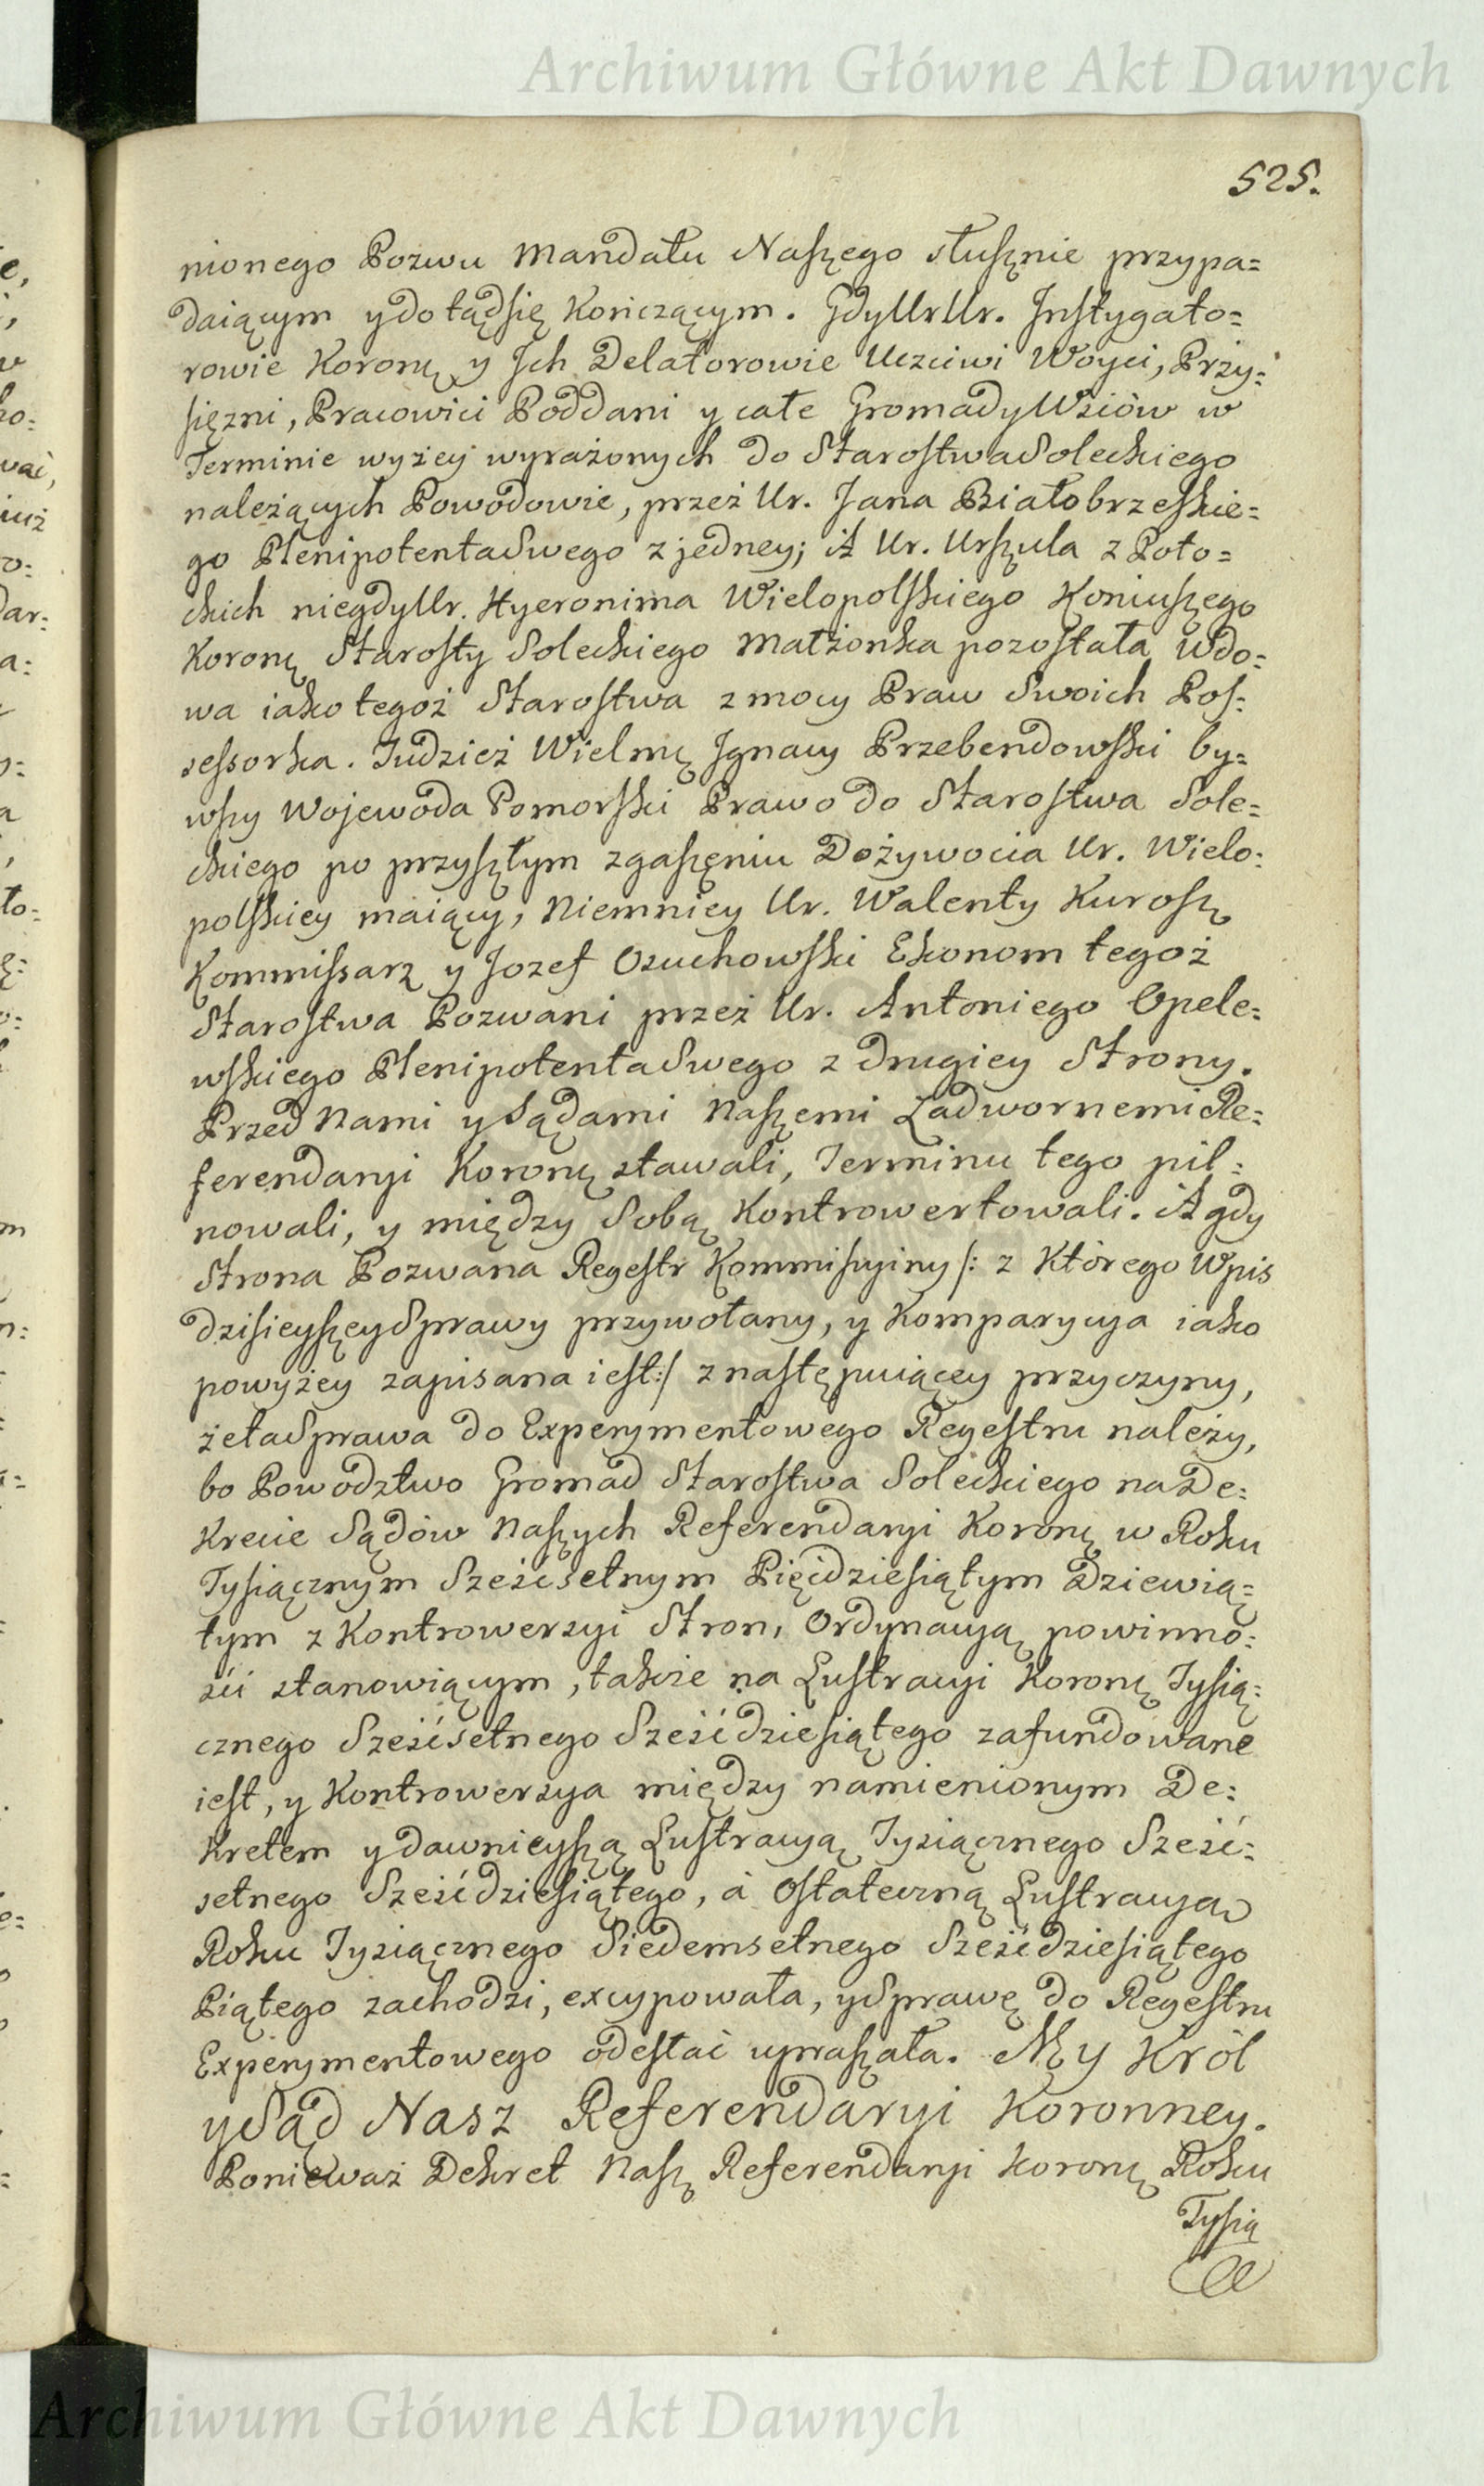 Archiwum Główne Akt Dawnych
525.
nionego Pozwu Mandatu Naszego słusznie przypa=
daiącym y dotąd się kończącym. Gdy Ur Ur. Instygato=
rowie Koronꝫ y Ich Delatorowie Uczciwi Woyci, Przy=
sięzni, Pracowici Poddani y całe Gromady Wsiów w
Terminie wyżey wyrażonych do Starostwa Soleckiego
należących Powodowie, przez Ur. Jana Białobrzeskie=
go Plenipotenta Swego z jedney; A Ur. Urszula z Poto=
ckich niegdy Ur. Hyeronima Wielopolskiego Koniuszego
Koronꝫ Starosty Soleckiego Małżonka pozostała Wdo=
wa iako tegoż Starostwa z mocy Praw Swoich Pos=
sessorka. Tudzież Wielmꝫ Ignacy Przebendowski by=
wszy Wojewoda Pomorski Prawo do Starostwa Sole=
ckiego po przyszłym zgaszeniu Dożywocia Ur. Wielo=
polskiey maiący, Niemniey Ur. Walenty Kurosz
Kommissarz y Jozef Ozuchowski Ekonom tegoż
Starostwa Pozwani przez Ur. Antoniego Opele=
wskiego Plenipotenta Swego z drugiey Strony.
Przed Nami y Sądami Naszemi Zadwornemi Re=
ferendaryi Koronꝫ stawali, Terminu tego pil=
nowali, y między Sobą Kontrowertowali. A gdy
Strona Pozwana Regestr Kommissyiny /: z Którego Wpis
dzisieyszey Sprawy przywołany, y Komparycya iako
powyżey zapisana iest :/ z następuiącey przyczyny,
że ta Sprawa do Experymentowego Regestru należy,
bo Powodztwo Gromad Starostwa Soleckiego na De=
krecie Sądów Naszych Referendaryi Koronꝫ w Roku
Tysiącznym Sześćsetnym Pięćdziesiątym Dziewią=
tym z Kontrowersyi Stron, Ordynacyą powinno=
ści stanowiącym, takie na Lustracyi Koronꝫ Tysią=
cznego Sześćsetnego Sześćdziesiątego zafundowane
iest, y Kontrowersya między namienionym De=
kretem y dawnieyszą Lustracyą Tysiącznego Sześć=
setnego Sześćdziesiątego, á Ostateczną Lustracyą
Roku Tysiącznego Siedemsetnego Sześćdziesiątego
Piątego zachodzi, excypowała, y Sprawę do Regestru
Experymentowego odesłać upraszała. My Król
y Sąd Nasz Referendaryi Koronney.
Ponieważ Dekret Nasz Referendaryi Koronꝫ Roku
Tysią
Archiwum Główne Akt Dawnych